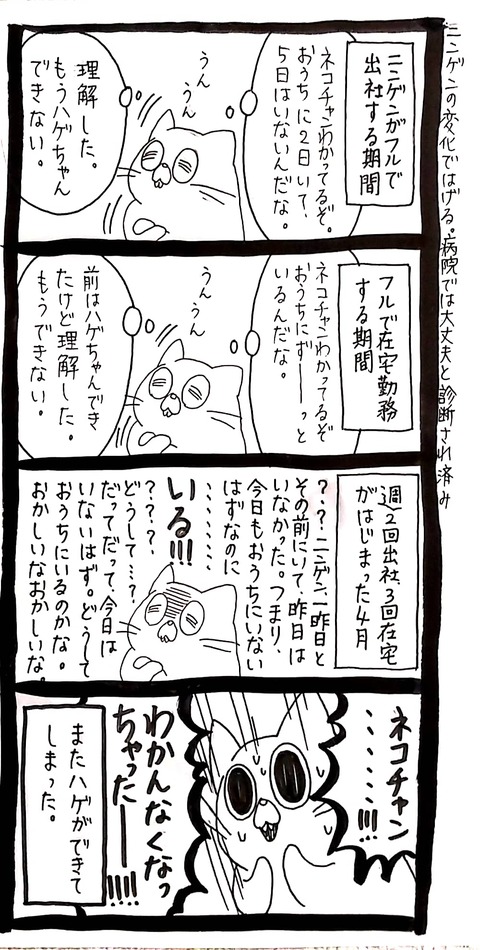 ニンゲンの変化ではげる。病院では大丈夫と診断され済み
ニンゲンがフルで
出社する期間
ネコチャンわかってるぞ。
おうちに2日いて、
5日はいないんだな。
うん
うん
理解した。
もうハゲちゃん
できない。
フルで在宅勤務
する期間
ネコチャンわかってるぞ
おうちにずーーっと
いるんだな。
うん
うん
前はハゲちゃんでき
たけど理解した。
もうできない。
週2回出社、3回在宅
がはじまった4月
??ニンゲン、一昨日と
その前にいて、昨日は
いなかった。つまり、
今日もおうちにいない
はずなのに
・・・・・・・・
いる!!!
????
どうして…?
だってだって、今日は
いないはず。どうして
おうちにいるのかな。
おかしいなおかしいな。
ネコチャン
・・・・・・!!!
わかんなくなっ
ちゃったーー!!!!
またハゲができて
しまった。